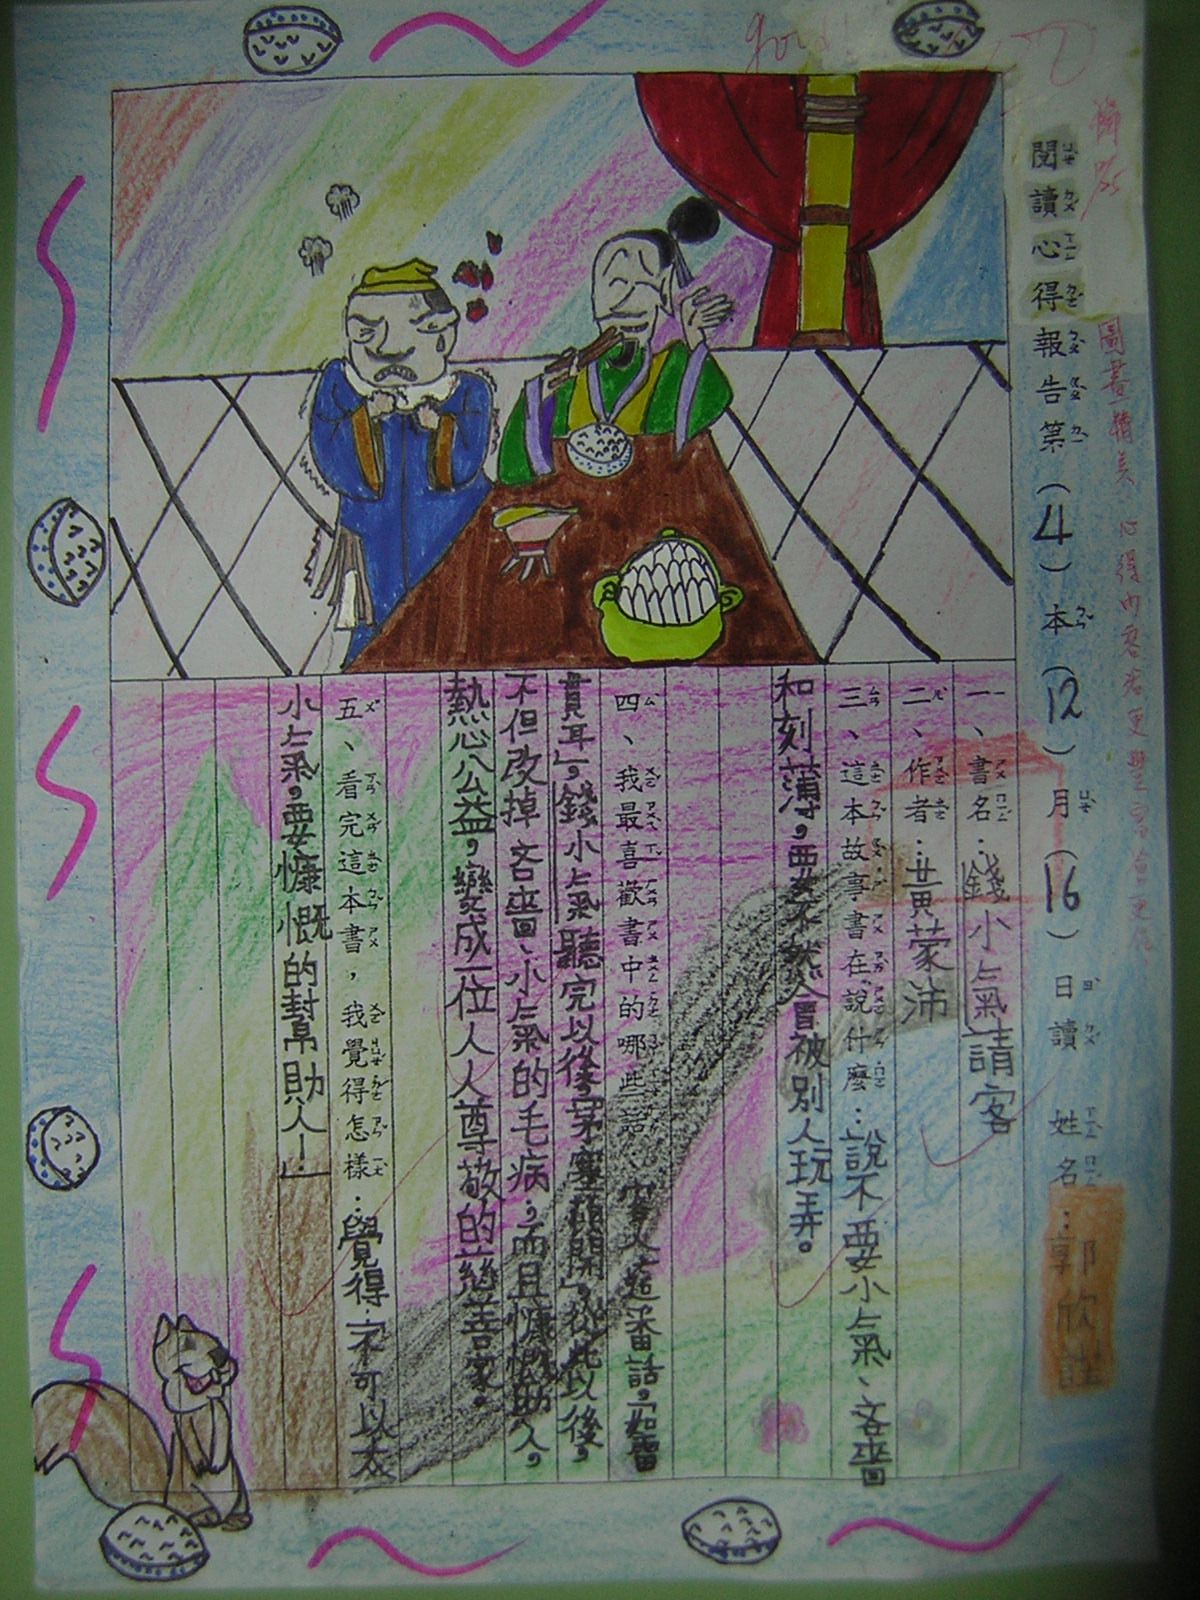 閱讀心得報告第(4)本(12)月(16)日讀 姓名:郭欣
一、書名:錢小氣請客
二、作者:黃蒙沛
三、這本故事書在說什麼:說不要小氣、吝嗇
和刻薄,要不然會被別人玩弄。
四、我最喜歡書中的哪些話:客人這番話,「如雷
貫耳」,錢小氣聽完以後,「茅塞頓開」,從此以後,
不但改掉吝嗇、小氣的毛病;而且慷慨助人,
熱心公益,變成一位人人尊敬的慈善家。
五、看完這本書,我覺得怎樣:覺得「不可以太
小氣,要慷慨的幫助人!」
圖畫精美 心得內容若更豐富會更佳